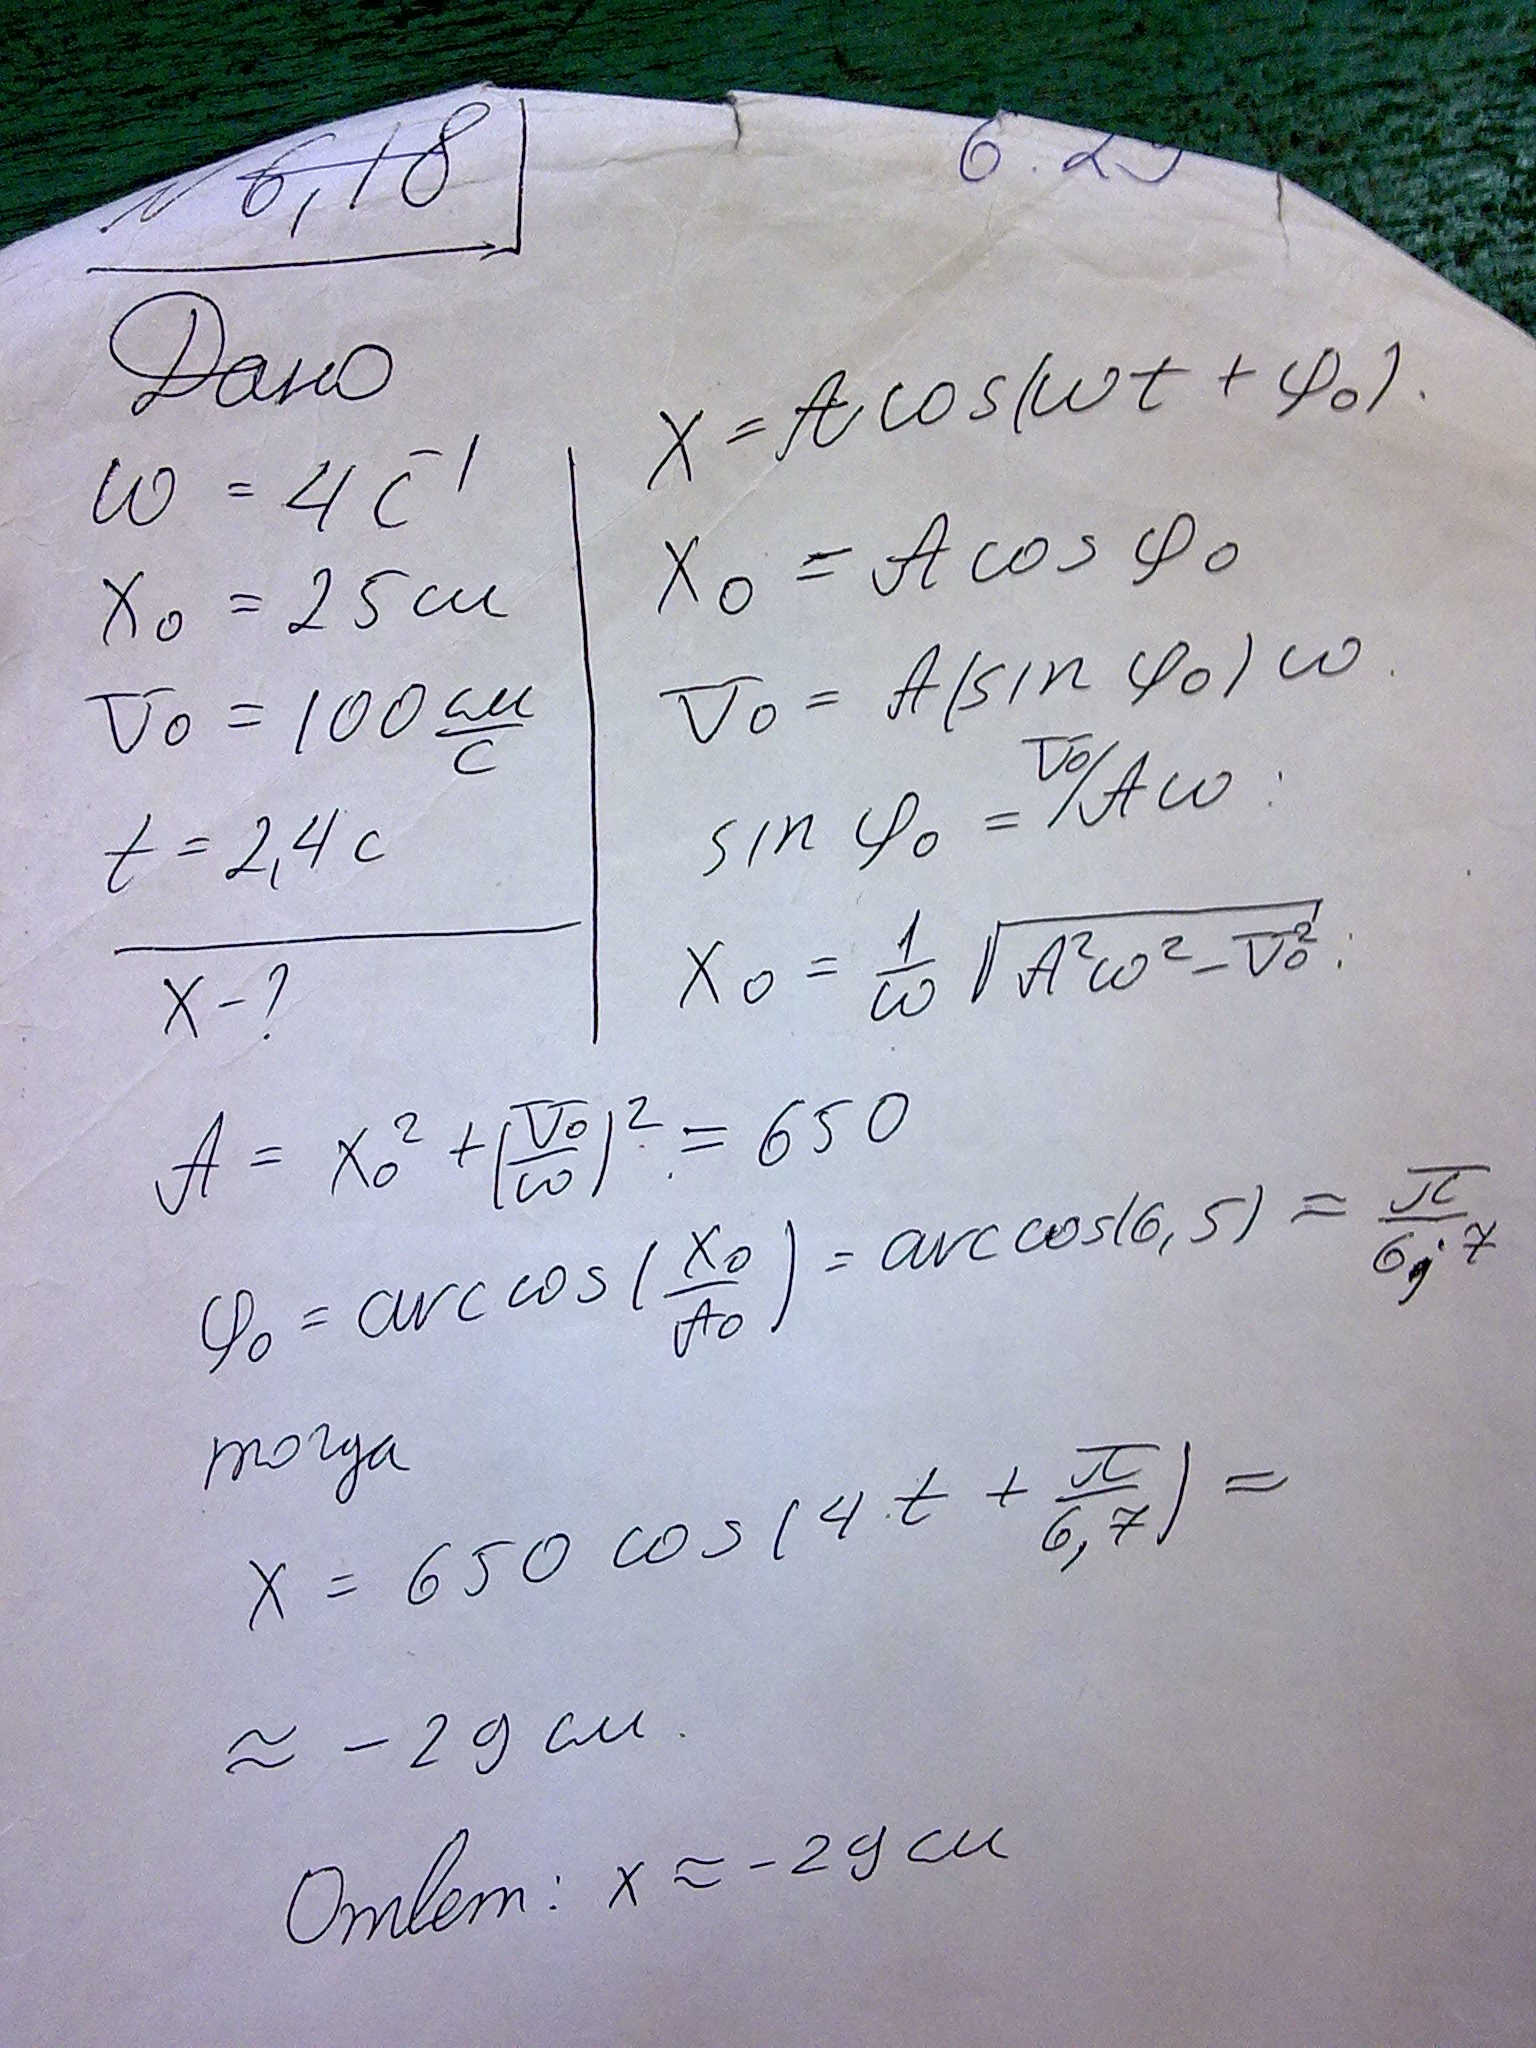 № 6,18
6.29
Дано
ω = 4 с⁻¹
x₀ = 25 см
v₀ = 100 см/с
t = 2,4 с
x - ?
x = A cos(ωt + φ₀).
x₀ = A cos φ₀
v₀ = A(sin φ₀) ω.
sin φ₀ = v₀/Aω :
x₀ = 1/ω √(A²ω² - v₀²) :
A = x₀² + (v₀/ω)² = 650
φ₀ = arccos(x₀/A₀) = arccos(6,5) ≈ π/6,7
тогда
x = 650 cos(4·t + π/6,7) ≈
≈ -29 см.
Ответ: x ≈ -29 см